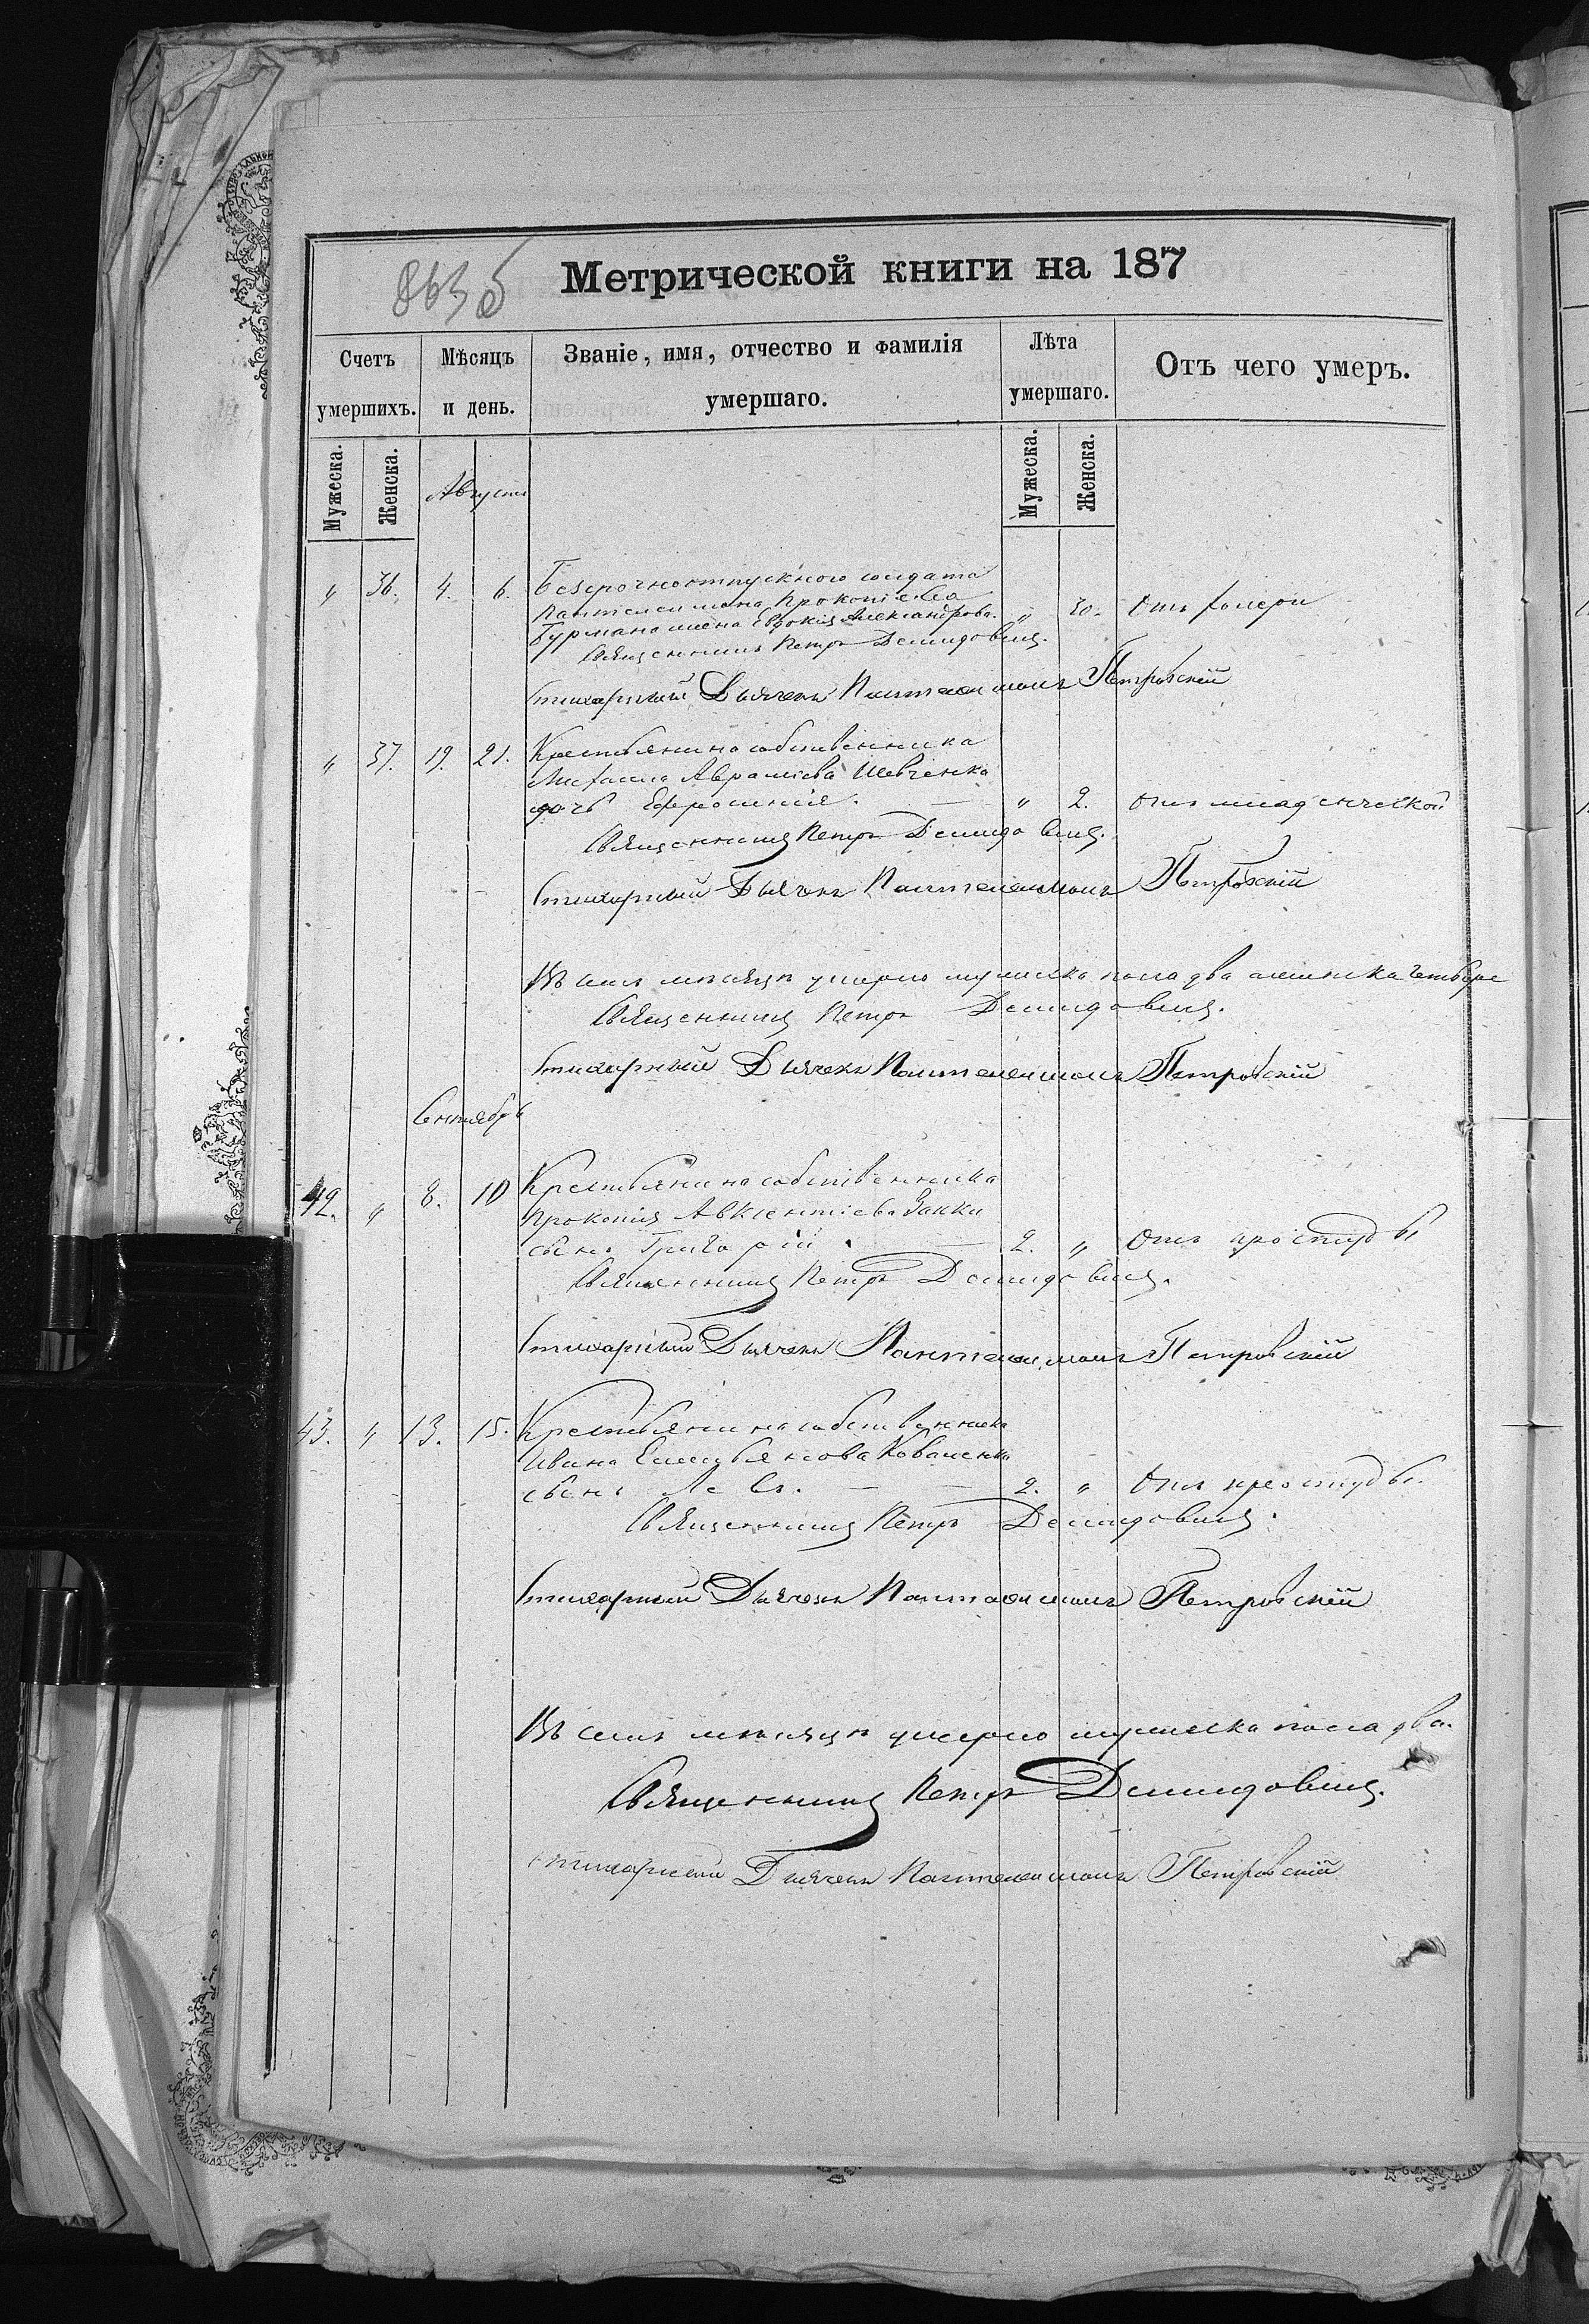 863 б
Метрической книги на 187
Счетъ умершихъ.
Мѣсяцъ и день.
Званіе, имя, отчество и фамилія умершаго.
Лѣта умершаго.
Отъ чего умеръ.
Мужеска.
Женска.
Августъ
Мужеска.
Женска.
" 36. 4. 6. Безсрочноотпускного солдата
Пантелеимона Прокопіева
Бурмана жена Евдокія Александрова. " 30. Отъ холеры
Священникъ Петръ Демидовичъ.
Стихарный Дьячекъ Пантелеимонъ Петровскій
" 37. 19. 21. Крестьянина собственника
Михаила Авраміева Шевченка
дочь Ефросинія. — " 2. Отъ младенческой
Священникъ Петръ Демидовичъ.
Стихарный Дьячекъ Пантелеимонъ Петровскій
Въ семъ мѣсяцѣ умерло мужеска пола два женска четыре
Священникъ Петръ Демидовичъ.
Стихарный Дьячекъ Пантелеимонъ Петровскій
Сентябрь
42. " 8. 10 Крестьянина собственника
Прокопія Авксентіева Заики
сынъ Григорій. — 2. " Отъ простуды
Священникъ Петръ Демидовичъ.
Стихарный Дьячекъ Пантелеимонъ Петровскій
43. " 13. 15. Крестьянина собственника
Ивана Емельянова Коваленка
сынъ Левъ. — — 2. " Отъ простуды.
Священникъ Петръ Демидовичъ.
Стихарный Дьячекъ Пантелеимонъ Петровскій
Въ семъ мѣсяцѣ умерло мужеска пола два.
Священникъ Петръ Демидовичъ.
Стихарный Дьячекъ Пантелеимонъ Петровскій